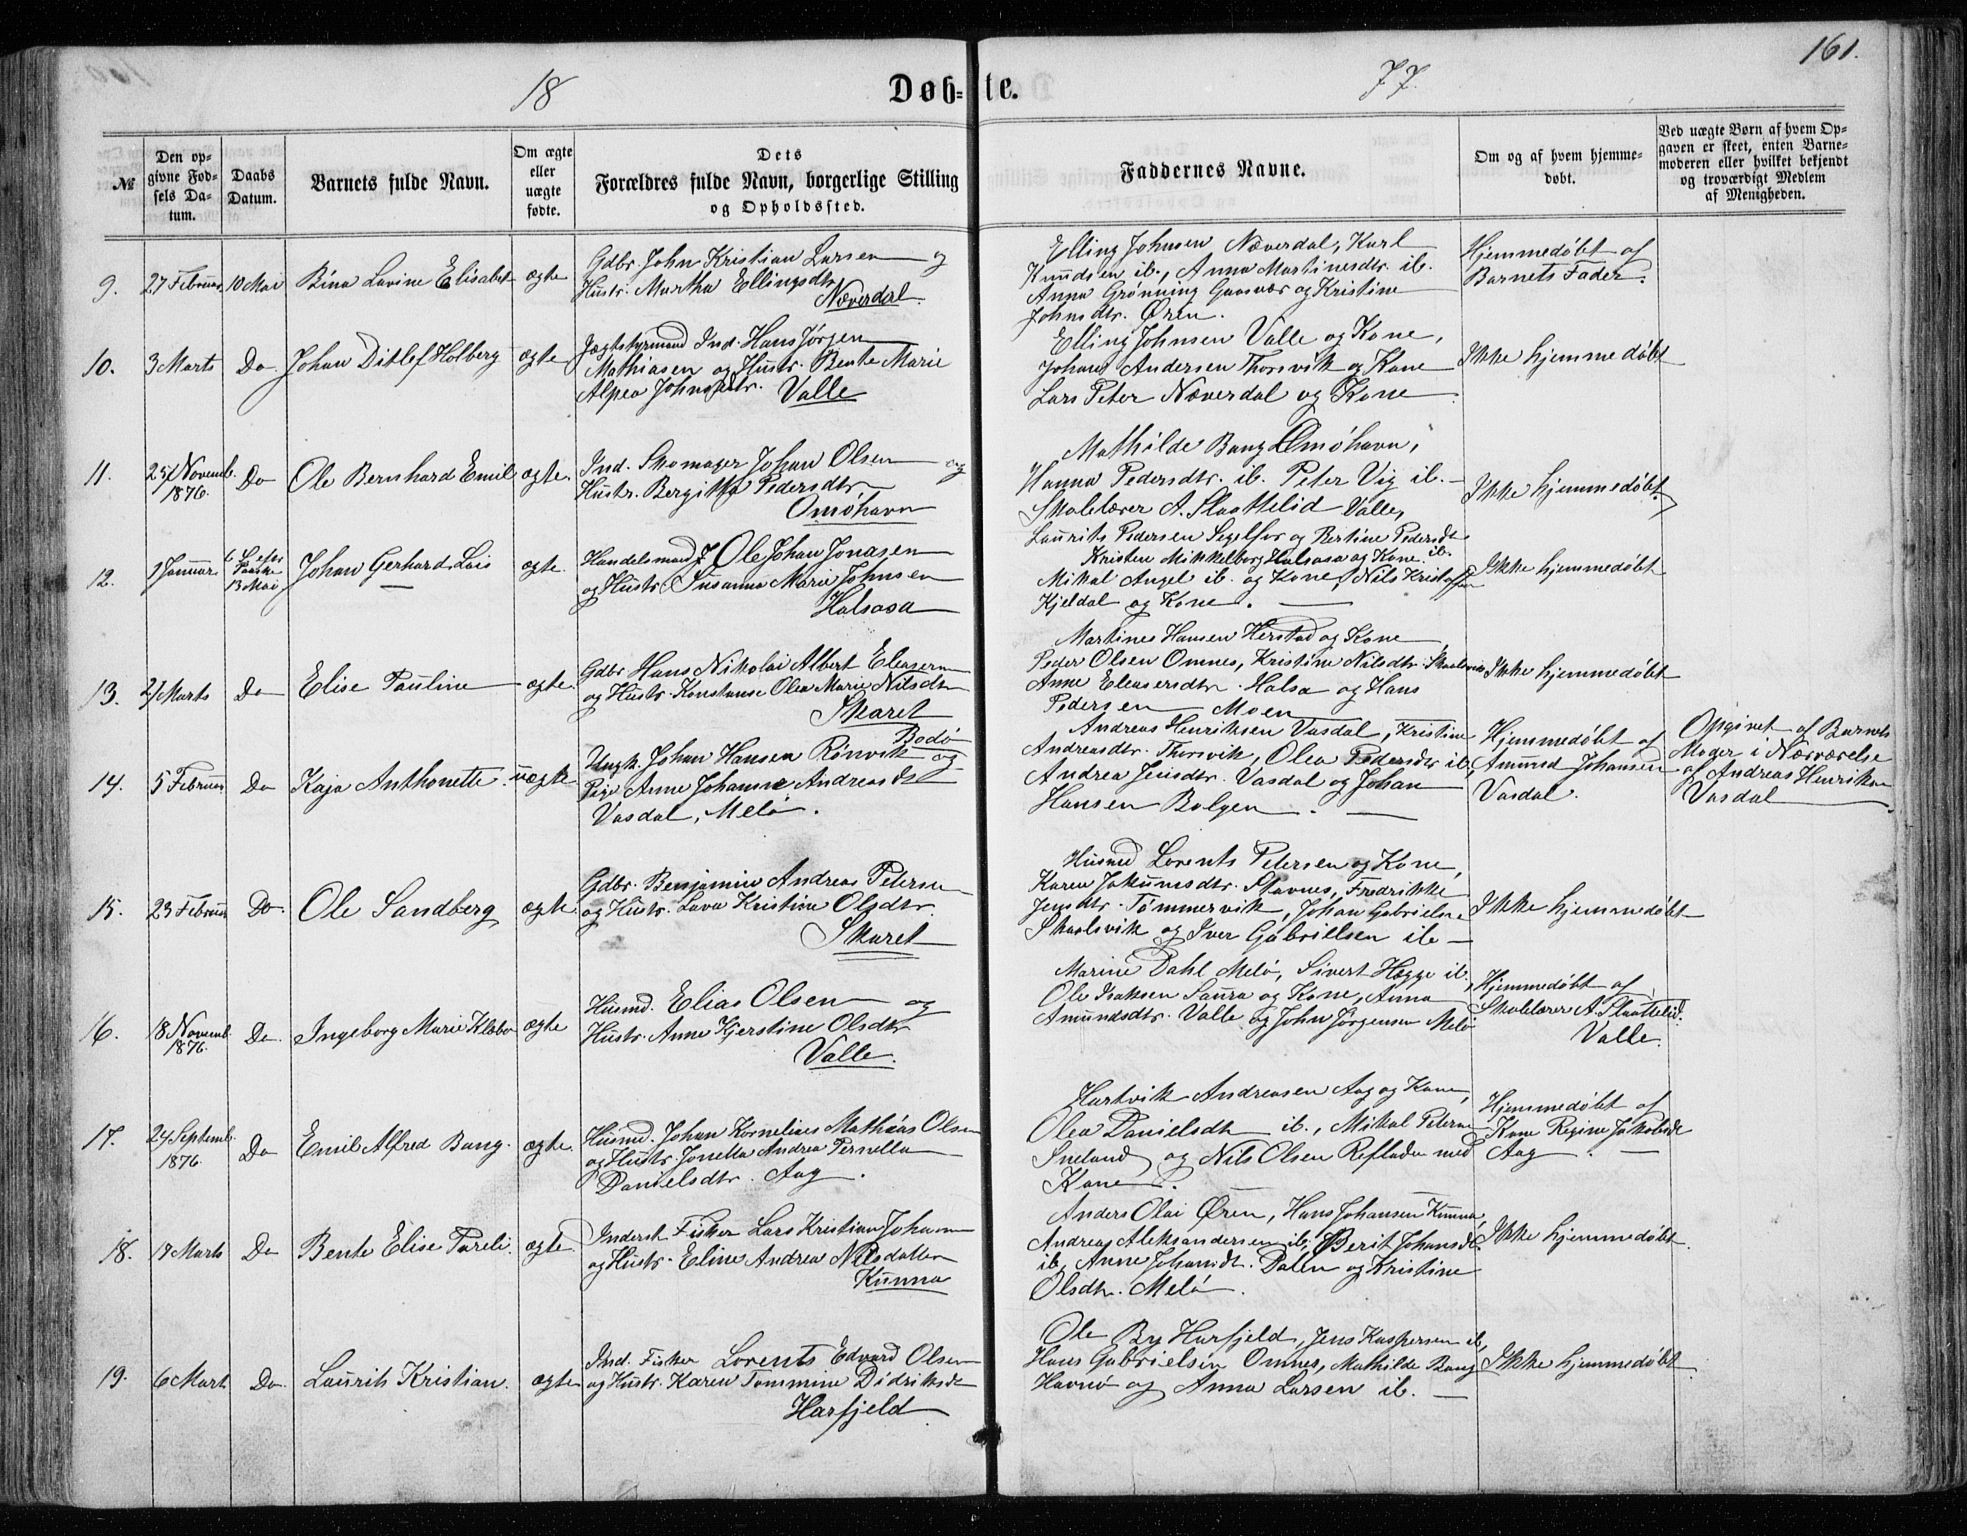 161.
18 Døb= te. 77.
№
Den op-
givne Fød-
sels Da-
tum.
Daabs
Datum.
Barnets fulde Navn.
Om ægte
eller
uægte
fødte.
Dets
Forældres fulde Navn, borgerlige Stilling
og Opholdssted.
Faddernes Navne.
Om og af hvem hjemme-
døbt.
Ved uægte Børn af hvem Op-
gaven er skeet, enten Barne-
moderen eller hvilket bekjendt
og troværdigt Medlem
af Menigheden.
9. 27 Februar 10 Mai Bina Lovine Elisabet ægte
Gdbr. John Kristian Larsen og
Hustr. Martha Ellingsdtr.
Næverdal.
Elling Johnsen Næverdal, Karl
Knudsen ib., Anna Martinesdtr. ib.
Anna Grønning Gaasvær og Kristine
Johnsdtr. Øren.
Hjemmedøbt af
Barnets Fader.
10. 3 Marts Do Johan Ditlef Holberg ægte
Jægtstyrmand Ind. Hans Jørgen
Mathiasen og Hustr. Bente Marie
Alpea Johnsdtr. Valle
Elling Johnsen Valle og Kone,
Johan Andersen Thorsvik og Kone
Lars Peter Næverdal og Kone
Ikke hjemmedøbt
11. 25 Novemb. 1876. Do Ole Bernhard Emil ægte.
Ind. Skomager Johan Olsen og
Hustr. Bergitta Pedersdtr
Omøhavn
Mathilde Bang Omøhavn,
Hanna Pedersdtr. ib. Peter Vig ib.
Skolelærer A. Slaattelid Valle,
Laurits Pedersen Segelfor og Bertine Pedersdt
Ikke hjemmedøbt
12. 1 Januar 13 Mai Johan Gerhard Lais ægte.
Handelsmand Ole Johan Jonasen
og Hustr. Susanna Marie Johnsen
Halsosa
Kristen Mikkelborg Halsosa og Kone ib.
Mikal Angel ib. og Kone, Nils Kristoffersen
Kjeldal og Kone.
Ikke hjemmedøbt
13. 21 Marts Do Elise Pauline ægte.
Gdbr. Hans Nikolai Albert Eleasersen
og Hustr. Konstanse Olea Marie Nilsdtr
Skaret
Martines Hansen Herstad og Kone
Peder Olsen Omnes, Kristine Nilsdtr.
Anne Eleasersdtr. Halsa og Hans
Pedersen Moen
Ikke hjemmedøbt
14. 5 Februar Do Kaja Anthonette. uægte
Bodø
Ungk. Johan Hansen Rønvik og
Pige Anne Johanne Andreasdt
Vasdal, Melø.
Andreas Henriksen Vasdal, Kristine
Andreasdtr. Thorsvik, Olea Pedersdtr ib,
Andrea Jensdtr. Vasdal og Johan
Hansen Bolgen.
Hjemmedøbt af
Amund Johansen
Vasdal.
Opgivet af Barnets
Moder i Nærværelse
af Andreas Henriksen
Vasdal
15. 23 Februar Do. Ole Sandberg ægte.
Gdbr. Benjamin Andreas Petersen
og Hustr. Lava Kristine Olsdtr.
Skaret
Husmd Lorents Petersen og Kone,
Karen Jokumsdtr. Stavnes, Fredrikke
Jensdtr. Tømmervik, Johan Gabrielsen
Skaolsvik og Iver Gabrielsen ib
Ikke hjemmedøbt
16. 18 Novemb. 1876. Do. Ingeborg Marie Klæbo ægte
Husmd. Elias Olsen og
Hustr. Anne Kjerstine Olsdtr
Valle.
Marine Dahl Melø, Sivert Hægge ib,
Ole Isaksen Saura og Kone, Anna
Amundsdtr. Valle og John Jørgensen Melø
Hjemmedøbt af
Skolelærer A. Slaattelid.
Valle.
17. 24 Septemb. 1876. Do Emil Alfred Bang. ægte.
Husmd. Johan Kornelius Mathias Olsen
og Hustr. Jonetta Andrea Pernella
Danielsdtr. Aag.
Hartvik Andreasen Aag og Kone,
Olea Danielsdt ib., Mikal Petersen
Sneland og Nils Olsen Refladen med
Kone.
Hjemmedøbt af
Kone Regine Jakobsdt
Aag.
18. 17 Marts Do Bente Elise Pareli. ægte
Inderst Fisker Lars Kristian Johansen
og Hustr. Eline Andrea Nilsdatter
Kunna
Anders Olai Øren, Hans Johansen Kunna
Andreas Aleksandersen ib, Berit Johansdt.
ib, Anne Johansdt. Dalen og Kristine
Olsdtr. Melø.
Ikke hjemmedøbt.
19. 6 Mart Do. Laurits Kristian. ægte
Ind. Fisker Lorents Edvard Olsen
og Hustr. Karen Tommine Didriksdt
Harfjeld
Ole By Harfjeld, Jens Kaspersen ib,
Hans Gabrielsen Omnes, Mathilde Bang
Havnø og Anna Larsen ib.
Ikke hjemmedøbt.